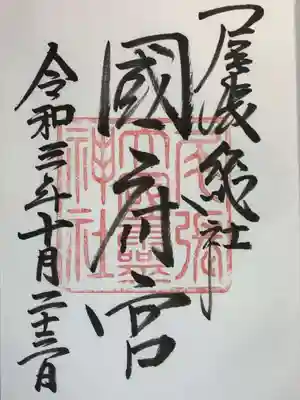 尾張総社
國府宮
令和三年十月二十三日
尾張
大國霊
神社